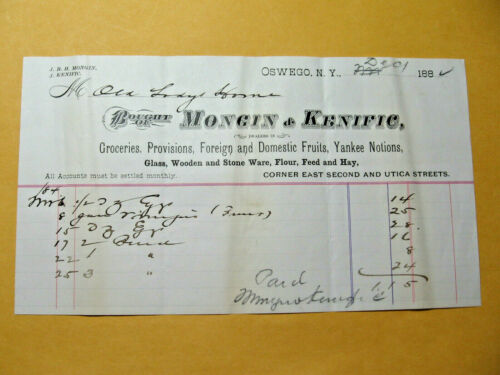 J. B. H. MONGIN,
J. KENIFIC.
OSWEGO, N. Y., Dec 1 188
M Old Ladys Home
BOUGHT OF MONGIN & KENIFIC,
DEALERS IN
Groceries, Provisions, Foreign and Domestic Fruits, Yankee Notions,
Glass, Wooden and Stone Ware, Flour, Feed and Hay,
All Accounts must be settled monthly. CORNER EAST SECOND AND UTICA STREETS.
1/2 Dz 14
8 25
15 Dz 28
17 2 16
22 1 " 8
25 3 " 24
Paid 1 15
Mongin & Kenific